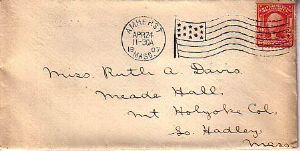 AMHERST
APR 24
11-30A
MASS.
Miss. Ruth A. Davis.
Meade Hall.
Mt Holyoke Col.
So. Hadley.
Mass.